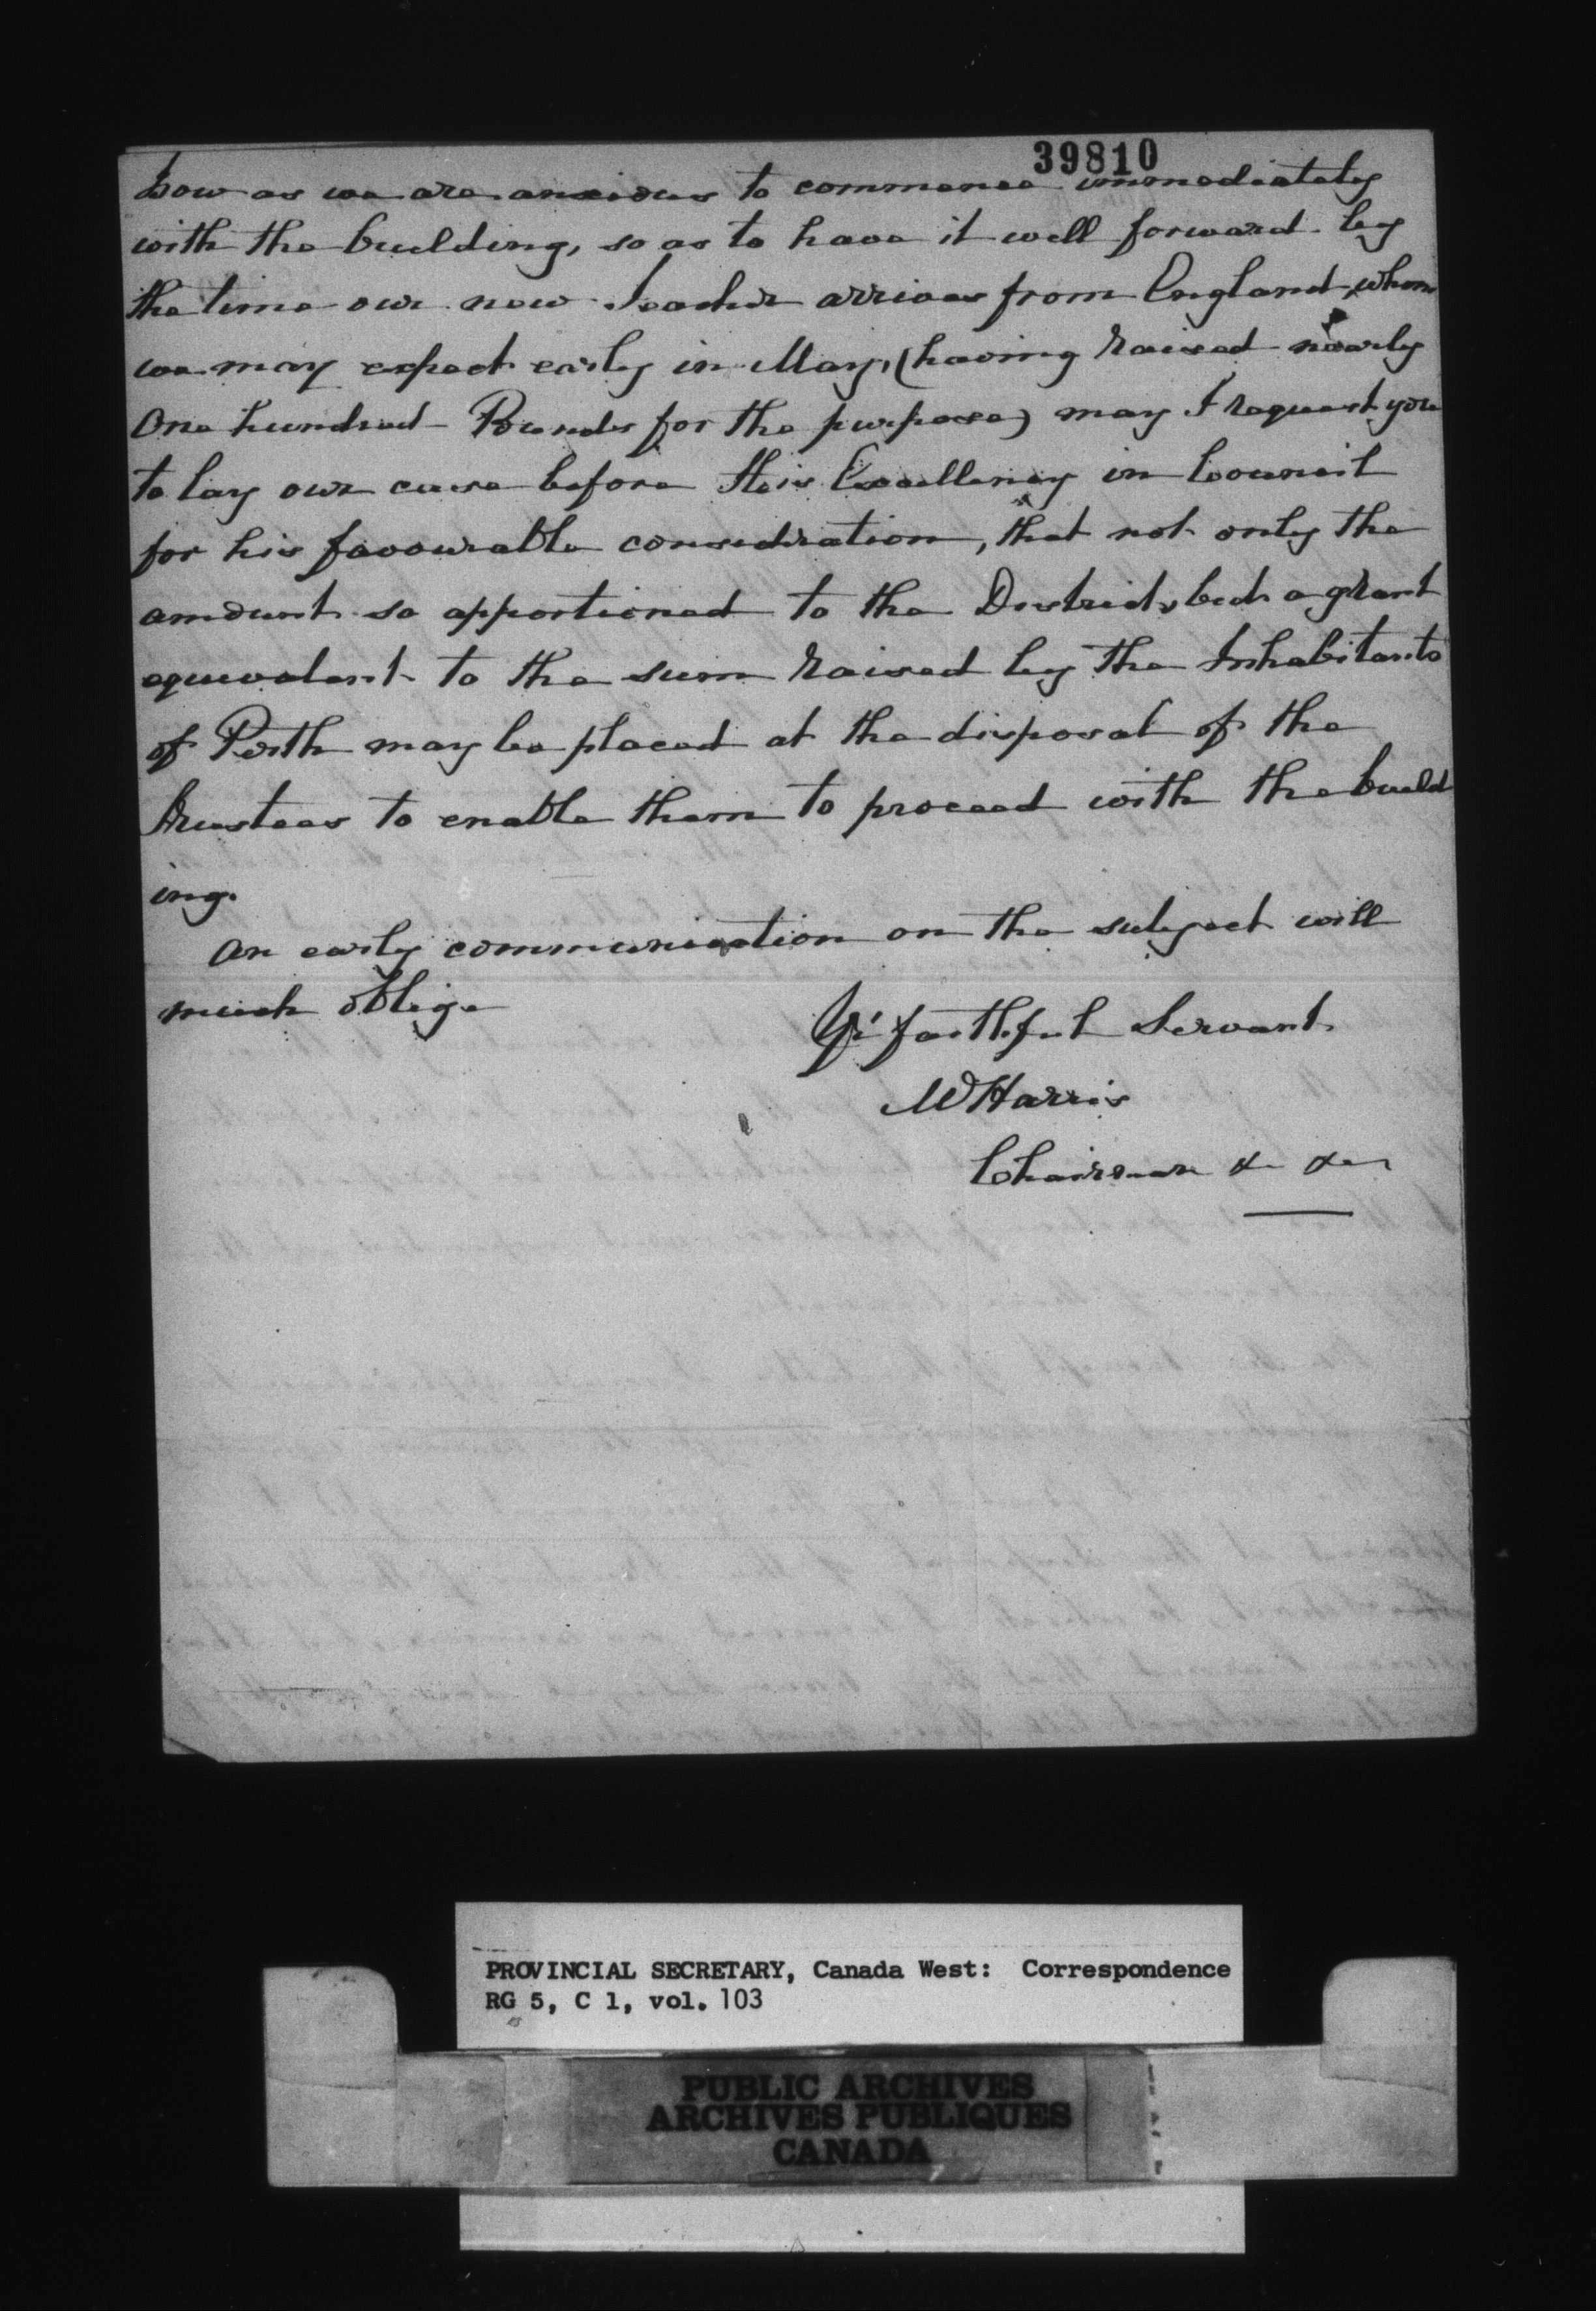 39810
how as we are anxious to commence immediately
with the building, so as to have it well forward by
the time our new Teacher arrives from England, whom
we may expect early in May, (having raised nearly
One hundred Pounds for the purpose) may I request you
to lay our case before His Excellency in Council
for his favourable consideration, that not only the
amount so apportioned to the District, but a grant
equivalent to the sum raised by the Inhabitants
of Perth may be placed at the disposal of the
Trustees to enable them to proceed with the build
ing.
An early communication on the subject will
much oblige
Yr faithful Servant
M Harris
Chairman &c &c
PROVINCIAL SECRETARY, Canada West: Correspondence
RG 5, C 1, vol. 103
PUBLIC ARCHIVES
ARCHIVES PUBLIQUES
CANADA